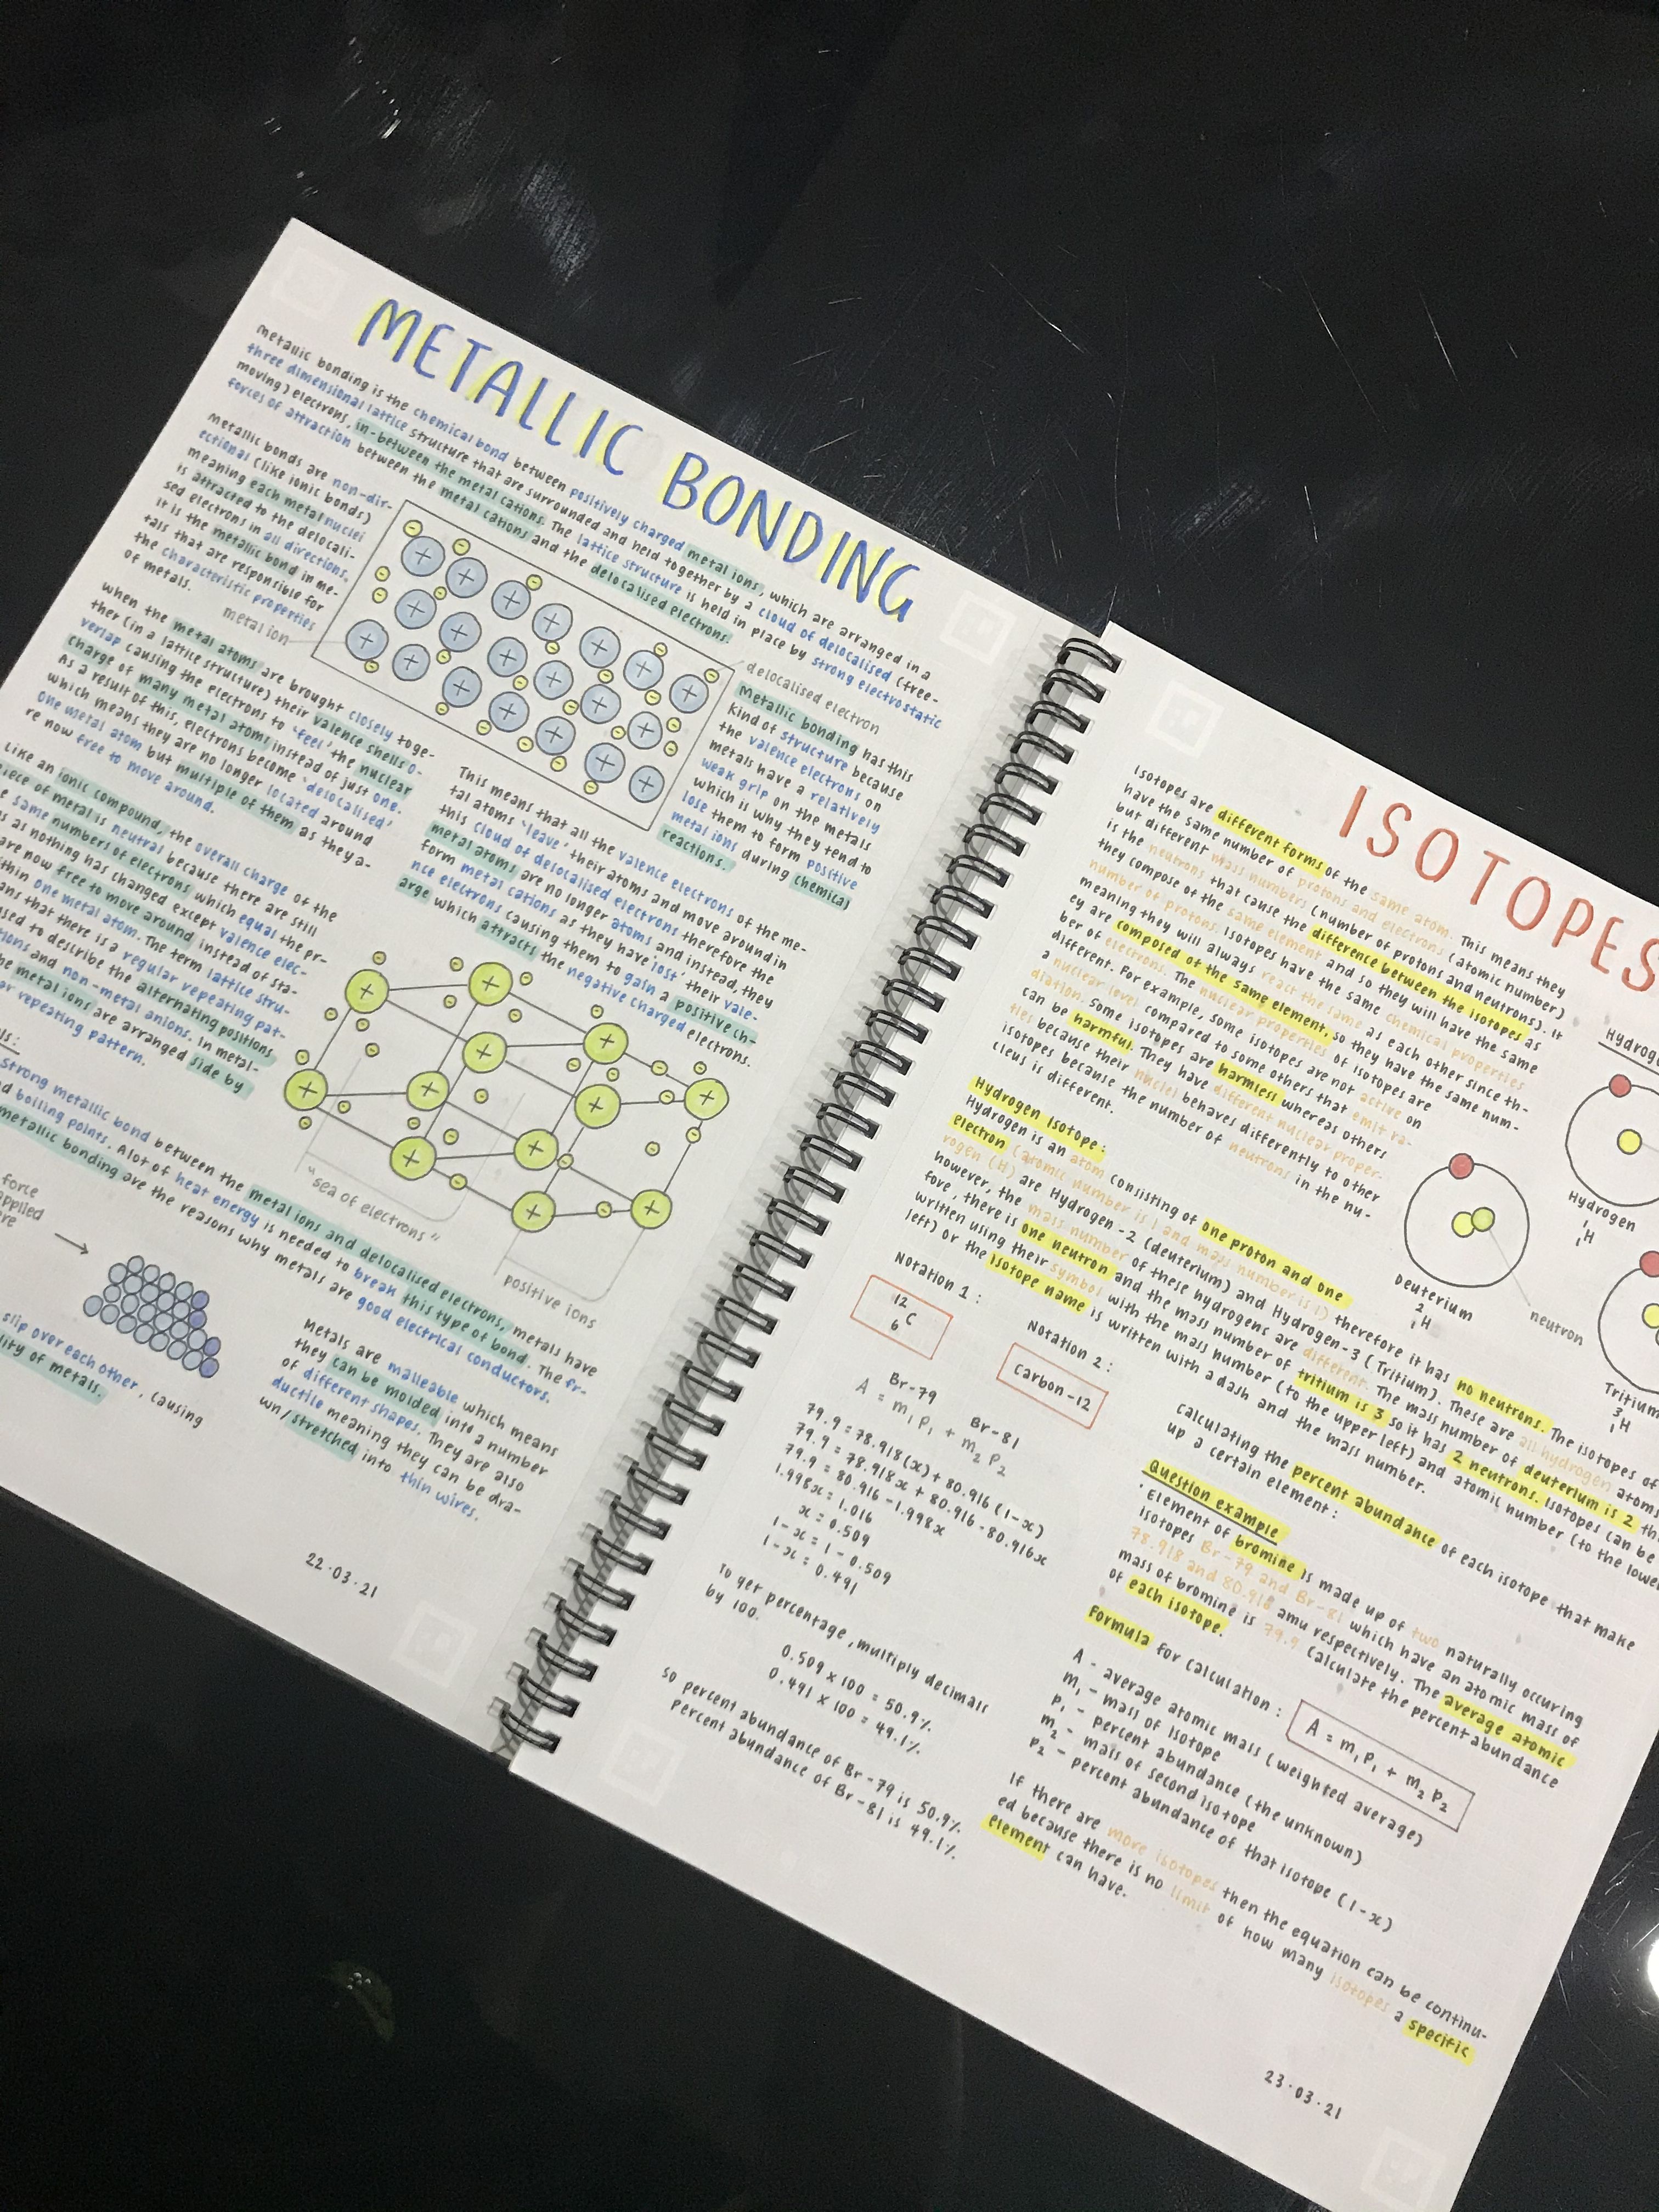 METALLIC BONDING
metallic bonding is the chemical bond between positively charged metal ions, which are arranged in a
three dimensional lattice structure that are surrounded and held together by a cloud of delocalised (free-
moving) electrons, in-between the metal cations. The lattice structure is held in place by strong electrostatic
forces of attraction between the metal cations and the delocalised electrons.
metallic bonds are non-dir-
ectional (like ionic bonds)
meaning each metal nuclei
is attracted to the delocali-
sed electrons in all directions,
it is the metallic bond in me-
tals that are responsible for
the characteristic properties
of metals.
metal ion
delocalised electron
metallic bonding has this
kind of structure because
the valence electrons on
metals have a relatively
weak grip on the metals
which is why they tend to
lose them to form positive
metal ions during chemical
reactions.
when the metal atoms are brought closely toge-
ther (in a lattice structure) their valence shells o-
verlap causing the electrons to 'feel' the nuclear
charge of many metal atoms instead of just one.
As a result of this, electrons become 'delocalised'
which means they are no longer located around
one metal atom but multiple of them as they a-
re now free to move around.
Like an ionic compound, the overall charge of the
piece of metal is neutral because there are still
same numbers of electrons which equal the pr-
as nothing has changed except valence elec-
are now free to move around instead of sta-
within one metal atom. The term lattice stru-
means that there is a regular repeating pat-
used to describe the alternating positions
and non-metal anions. In metal-
the metal ions are arranged side by
repeating pattern.
This means that all the valence electrons of the me-
tal atoms 'leave' their atoms and move around in
this cloud of delocalised electrons therefore the
metal atoms are no longer atoms and instead, they
form metal cations as they have 'lost' their vale-
nce electrons causing them to gain a positive ch-
arge which attracts the negative charged electrons.
"sea of electrons"
positive ions
strong metallic bond between the metal ions and delocalised electrons, metals have
boiling points. Alot of heat energy is needed to break this type of bond. The fr-
metallic bonding are the reasons why metals are good electrical conductors.
force
applied
slip over each other, causing
of metals.
Metals are malleable which means
they can be molded into a number
of different shapes. They are also
ductile meaning they can be dra-
wn/stretched into thin wires.
22.03.21
ISOTOPES
Isotopes are different forms of the same atom. This means they
have the same number of protons and electrons (atomic number)
but different mass numbers (number of protons and neutrons). It
is the neutrons that cause the difference between the isotopes as
they compose of the same element and so they will have the same
number of protons. Isotopes have the same chemical properties
meaning they will always react the same as each other since th-
ey are composed of the same element, so they have the same num-
ber of electrons. The nuclear properties of isotopes are
different. For example, some isotopes are not active on
a nuclear level compared to some others that emit ra-
diation. Some isotopes are harmless whereas others
can be harmful. They have different nuclear proper-
ties because their nuclei behaves differently to other
isotopes because the number of neutrons in the nu-
cleus is different.
Hydrogen
Hydrogen
1
1 H
Deuterium
2
1 H
neutron
Tritium
3
1 H
Hydrogen Isotope:
Hydrogen is an atom consisting of one proton and one
electron (atomic number is 1 and mass number is 1) therefore it has no neutrons. The isotopes of
rogen (H) are Hydrogen-2 (deuterium) and Hydrogen-3 (Tritium). These are all hydrogen atoms
however, the mass number of these hydrogens are different. The mass number of deuterium is 2 th
fore, there is one neutron and the mass number of tritium is 3 so it has 2 neutrons. Isotopes can be
written using their symbol with the mass number (to the upper left) and atomic number (to the lower
left) or the isotope name is written with a dash and the mass number.
Notation 1:
12
6 C
Notation 2:
Carbon-12
Br-79 Br-81
A = m1 P1 + m2 P2
79.9 = 78.918(x) + 80.916 (1-x)
79.9 = 78.918x + 80.916 - 80.916x
79.9 = 80.916 - 1.998x
1.998x = 1.016
x = 0.509
1-x = 1 - 0.509
1-x = 0.491
To get percentage, multiply decimals
by 100.
0.509 x 100 = 50.9%
0.491 x 100 = 49.1%
So percent abundance of Br-79 is 50.9%
Percent abundance of Br-81 is 49.1%
Calculating the percent abundance of each isotope that make
up a certain element:
Question example
· Element of bromine is made up of two naturally occuring
isotopes Br-79 and Br-81 which have an atomic mass of
78.918 and 80.916 amu respectively. The average atomic
mass of bromine is 79.9. Calculate the percent abundance
of each isotope.
Formula for calculation: A = m1 P1 + m2 P2
A - average atomic mass (weighted average)
m1 - mass of isotope
P1 - percent abundance (the unknown)
m2 - mass of second isotope
P2 - percent abundance of that isotope (1-x)
If there are more isotopes then the equation can be continu-
ed because there is no limit of how many isotopes a specific
element can have.
23.03.21